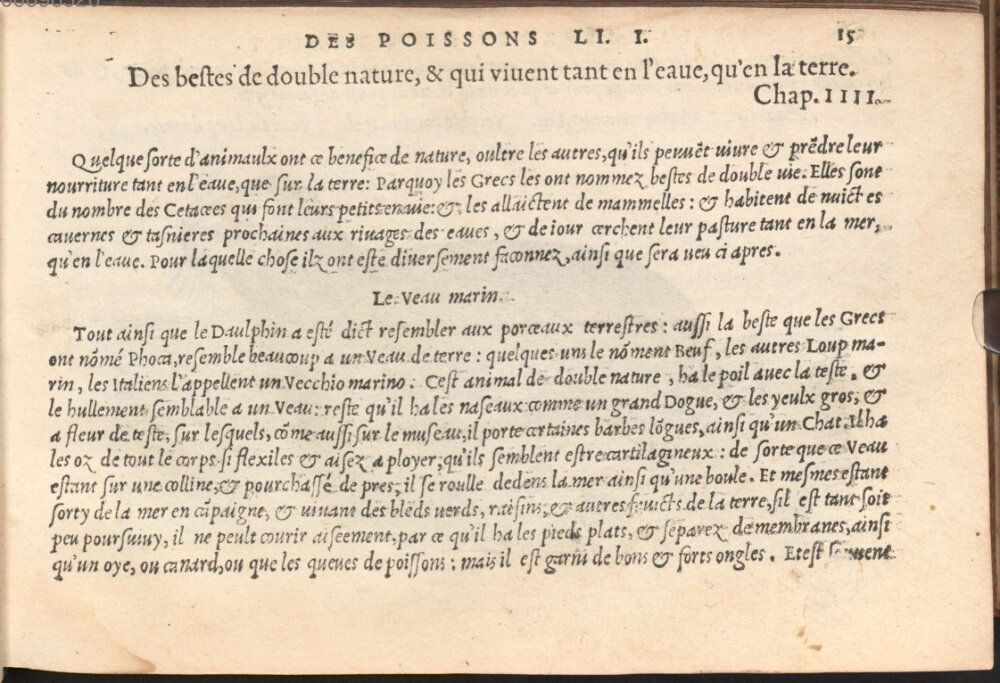 DES POISSONS LI. I. 15
Des bestes de double nature, & qui viuent tant en l'eaue, qu'en la terre.
Chap. IIII.
Quelque sorte d'animaulx ont ce benefice de nature, oultre les autres, qu'ils peuuēt viure & prēdre leur
nourriture tant en l'eaue, que sur la terre: Parquoy les Grecs les ont nommez bestes de double vie. Elles sont
du nombre des Cetacees qui font leurs petits en vie: & les allaictent de mammelles: & habitent de nuict es
cauernes & tasnieres prochaines aux riuages des eaues, & de iour cerchent leur pasture tant en la mer,
qu'en l'eaue. Pour laquelle chose ilz ont esté diuersement façonnez, ainsi que sera veu ci apres.
Le Veau marin.
Tout ainsi que le Daulphin a esté dict resembler aux porceaux terrestres: aussi la beste que les Grecs
ont nōmé Phoca, resemble beaucoup a un Veau de terre: quelques uns le nōment Beuf, les autres Loup ma-
rin, les Italiens l'appellent un Vecchio marino. C'est animal de double nature, ha le poil auec la teste, &
le hullement semblable a un Veau: reste qu'il ha les naseaux comme un grand Dogue, & les yeulx gros, &
a fleur de teste, sur lesquels, cōme aussi sur le museau, il porte certaines barbes lōgues, ainsi qu'un Chat. Il ha
les oz de tout le corps si flexiles & aisez a ployer, qu'ils semblent estre cartilagineux: de sorte que ce Veau
estant sur une colline, & pourchassé de pres, il se roulle dedens la mer ainsi qu'une boule. Et mesmes estant
sorty de la mer en cāpaigne, & viuant des bleds verds, raisins, & autres fruicts de la terre, s'il est tant soit
peu poursuiuy, il ne peult courir aiseement, par ce qu'il ha les pieds plats, & separez de membranes, ainsi
qu'un oye, ou canard, ou que les queues de poissons: mais il est garni de bons & forts ongles. Et est souuent